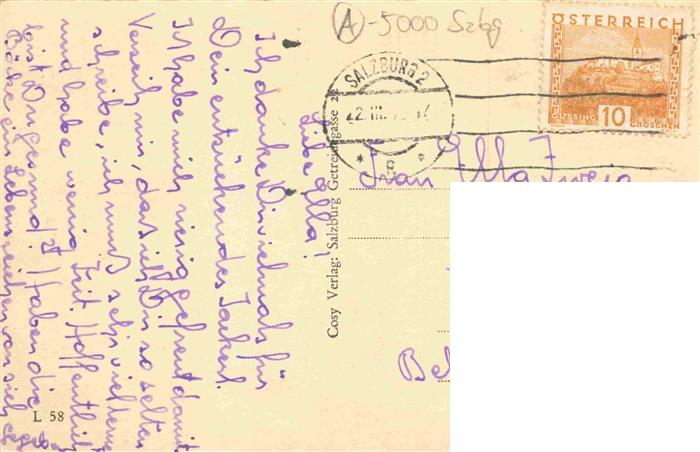 A - 5000 Szbg
ÖSTERREICH
GÜSSING 10 GROSCHEN
SALZBURG 2
22.III.
* 8 *
Frau Ella
Be
Cosy Verlag: Salzburg Getreidegasse 2
Liebe Ella!
Ich danke Dir vielmals für
Dein entzückendes Jackerl.
Ich habe mich riesig gefreut damit
Verzeih mir, das ich Dir so selten
schreibe, ich muß sehr viel lernen
und habe wenig Zeit. Hoffentlich
bist Du gesund. Haben die
ein Lebenszeichen von sich
L 58